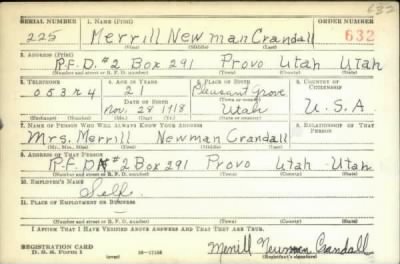 632
SERIAL NUMBER 1. NAME (Print) ORDER NUMBER
225 Merrill Newman Crandall 632
(First) (Middle) (Last)
2. ADDRESS (Print)
R.F.D. #2 Box 291 Provo Utah Utah
(Number and street or R. F. D. number) (Town) (County) (State)
3. TELEPHONE 4. AGE IN YEARS 5. PLACE OF BIRTH 6. COUNTRY OF CITIZENSHIP
053R4 21 Pleasant Grove
DATE OF BIRTH (Town or county)
Nov. 28 1918 Utah U.S.A.
(Exchange) (Number) (Mo.) (Day) (Yr.) (State or country)
7. NAME OF PERSON WHO WILL ALWAYS KNOW YOUR ADDRESS 8. RELATIONSHIP OF THAT PERSON
Mrs. Merrill Newman Crandall
(Mr., Mrs., Miss) (First) (Middle) (Last)
9. ADDRESS OF THAT PERSON
R.F.D. #2 Box 291 Provo Utah Utah
(Number and street or R. F. D. number) (Town) (County) (State)
10. EMPLOYER'S NAME
Self
11. PLACE OF EMPLOYMENT OR BUSINESS
(Number and street or R. F. D. number) (Town) (County) (State)
I AFFIRM THAT I HAVE VERIFIED ABOVE ANSWERS AND THAT THEY ARE TRUE.
REGISTRATION CARD
D. S. S. Form 1 (over) 16-17105 Merrill Newman Crandall
(Registrant's signature)